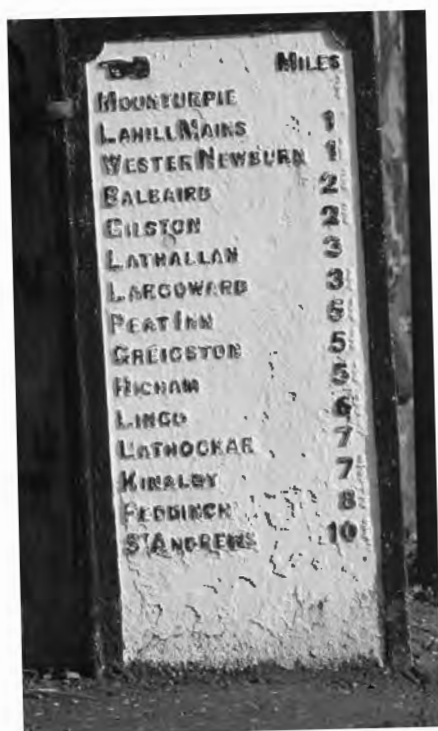 MILES
MOUNTURPIE
LAHILL MAINS 1
WESTER NEWBURN 1
BALBAIRD 2
GILSTON 2
LATHALLAN 3
LARGOWARD 3
PEAT INN 5
GREIGSTON 5
HIGHAM 5
LINGO 6
LATHOCKAR 7
KINALDY 7
FEDDINCH 8
ST ANDREWS 10